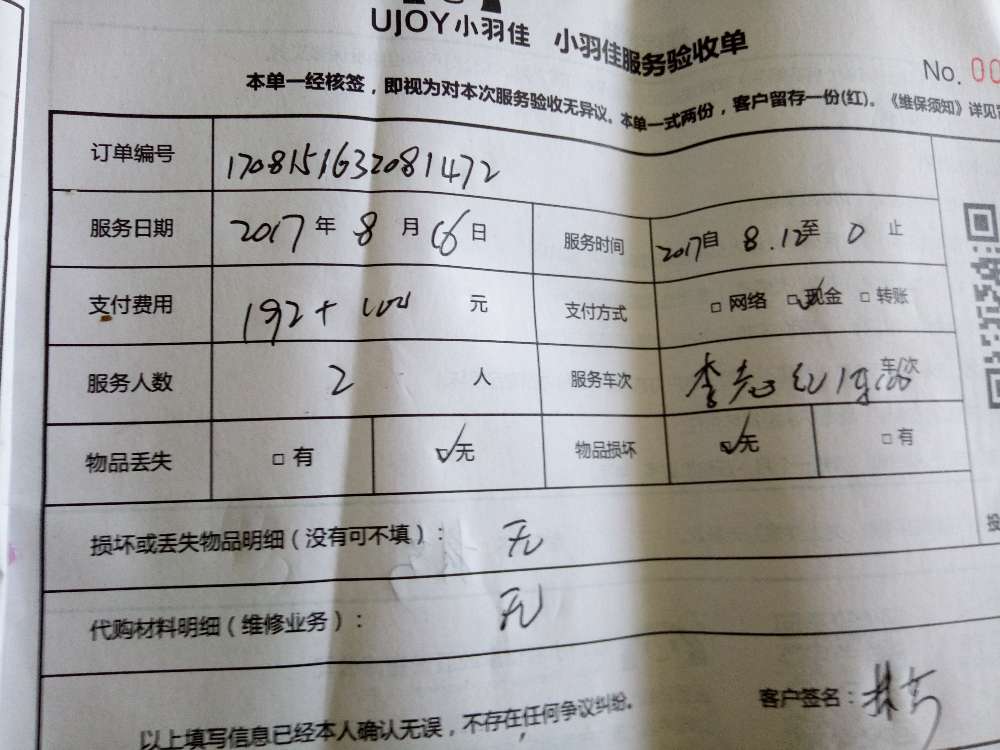 UJOY小羽佳 小羽佳服务验收单
No. 00
本单一经核签，即视为对本次服务验收无异议。本单一式两份，客户留存一份(红)。《维保须知》详见
订单编号 1708151632081472
服务日期 2017年8月16日 服务时间 2017自8.12至0止
支付费用 192+100元 支付方式 □网络 ☑现金 □转账
服务人数 2人 服务车次 李 车/次
物品丢失 □有 ☑无 物品损坏 ☑无 □有
损坏或丢失物品明细（没有可不填）： 无
代购材料明细（维修业务）： 无
客户签名：
以上填写信息已经本人确认无误，不存在任何争议纠纷。